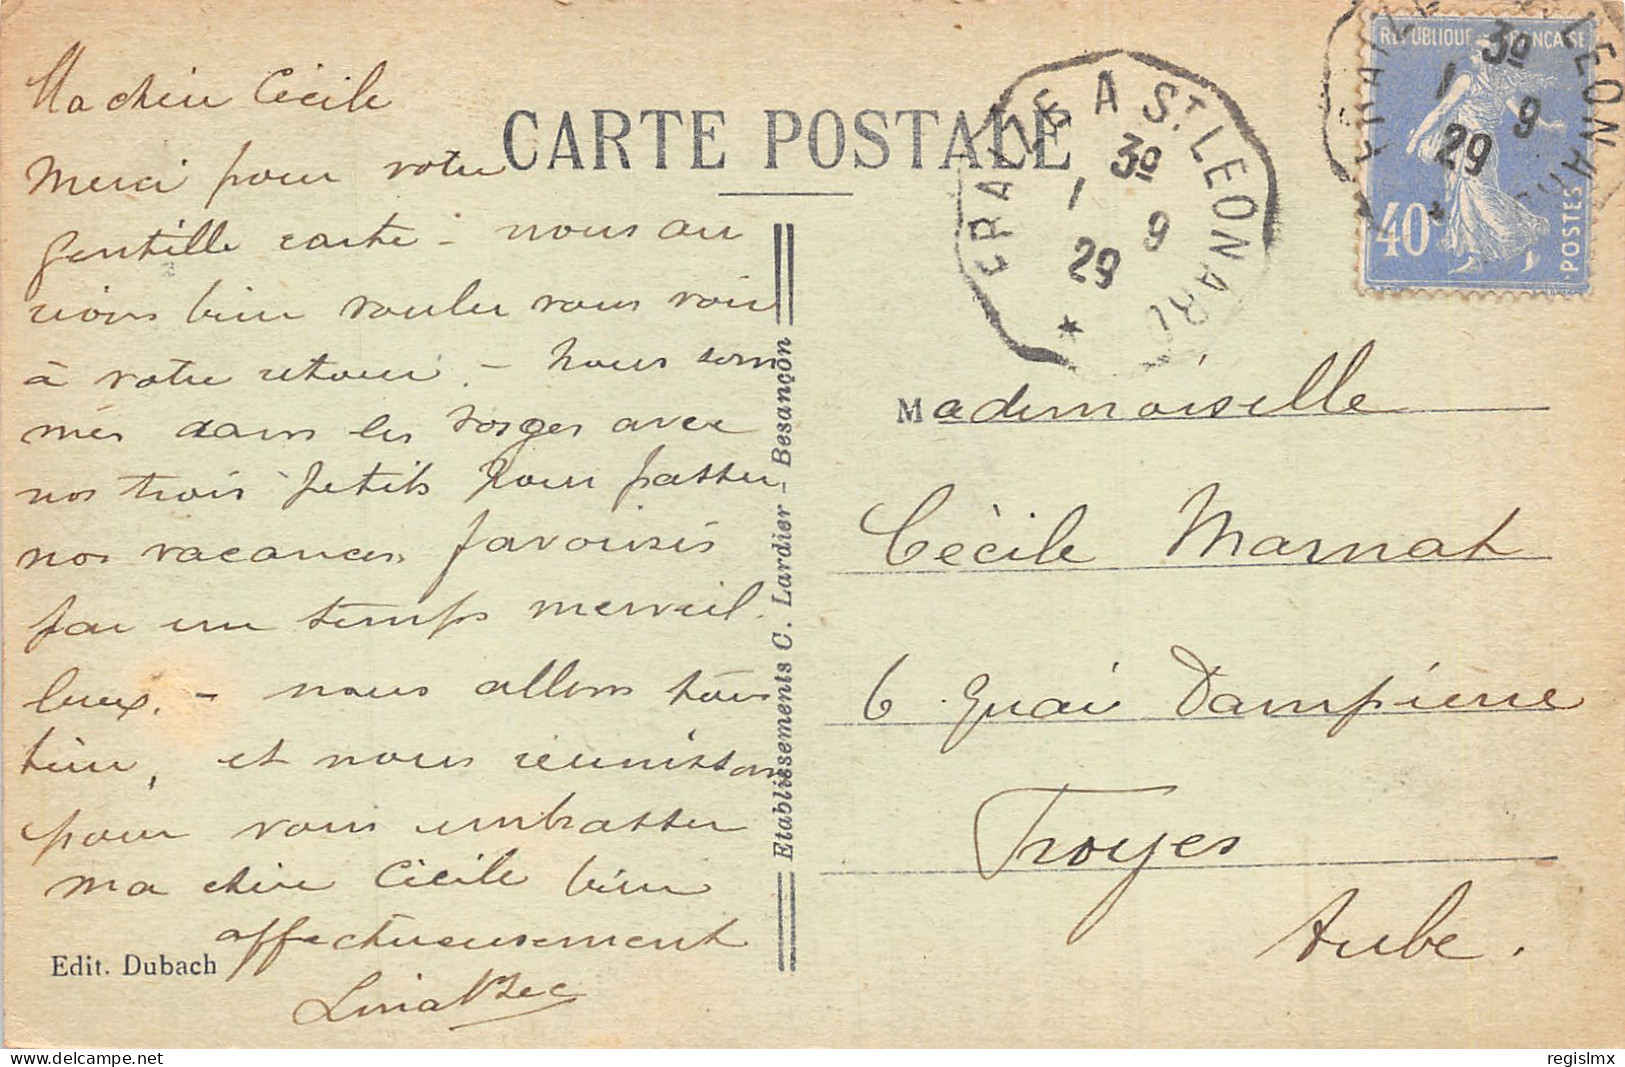 Ma chère Cécile
Merci pour votre
gentille carte – nous au
rions bien voulu vous voir
à votre retour. – Nous som
mes dans les Vosges avec
nos trois petits pour passer
nos vacances favorisés
par un temps merveil
leux. – nous allons tous
bien, et nous réunissons
pour vous embrasser
ma chère Cécile bien
affectueusement
Edit. Dubach
CARTE POSTALE
Etablissements C. Lardier - Besançon
FRAIZE A ST. LEONARD
1 3º
29 9
REPUBLIQUE FRANÇAISE
40c
POSTES
FRAIZE
LEONARD
1 3º
29 9
Mademoiselle
Cécile Marnat
6 Quai Dampierre
Troyes
Aube.
www.delcampe.net
regislmx